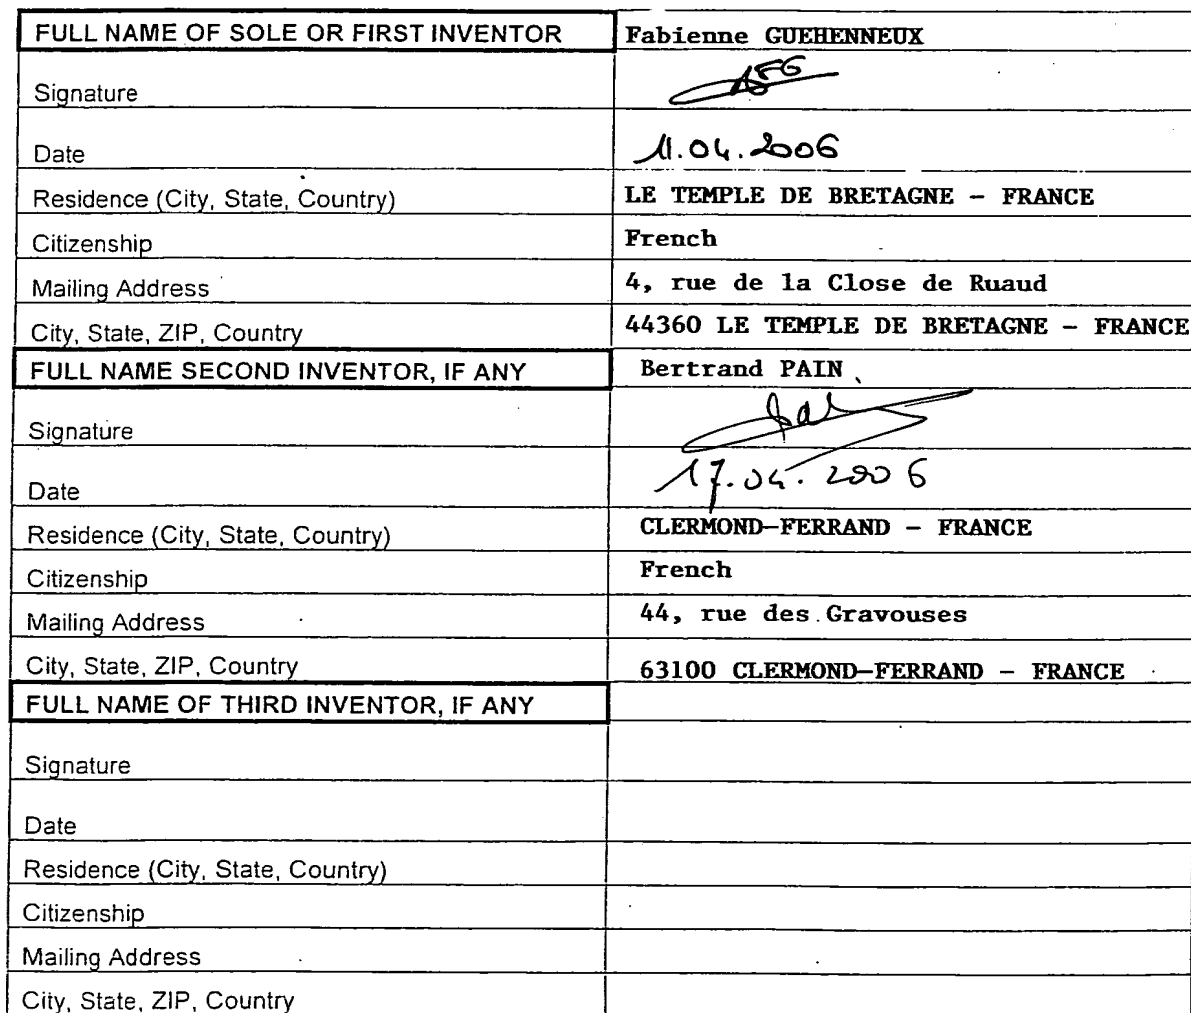 FULL NAME OF SOLE OR FIRST INVENTOR Fabienne GUEHENNEUX
Signature
Date 11.04.2006
Residence (City, State, Country) LE TEMPLE DE BRETAGNE – FRANCE
Citizenship French
Mailing Address 4, rue de la Close de Ruaud
City, State, ZIP, Country 44360 LE TEMPLE DE BRETAGNE – FRANCE
FULL NAME SECOND INVENTOR, IF ANY Bertrand PAIN
Signature
Date 17.04.2006
Residence (City, State, Country) CLERMOND-FERRAND – FRANCE
Citizenship French
Mailing Address 44, rue des Gravouses
City, State, ZIP, Country 63100 CLERMOND-FERRAND – FRANCE
FULL NAME OF THIRD INVENTOR, IF ANY
Signature
Date
Residence (City, State, Country)
Citizenship
Mailing Address
City, State, ZIP, Country